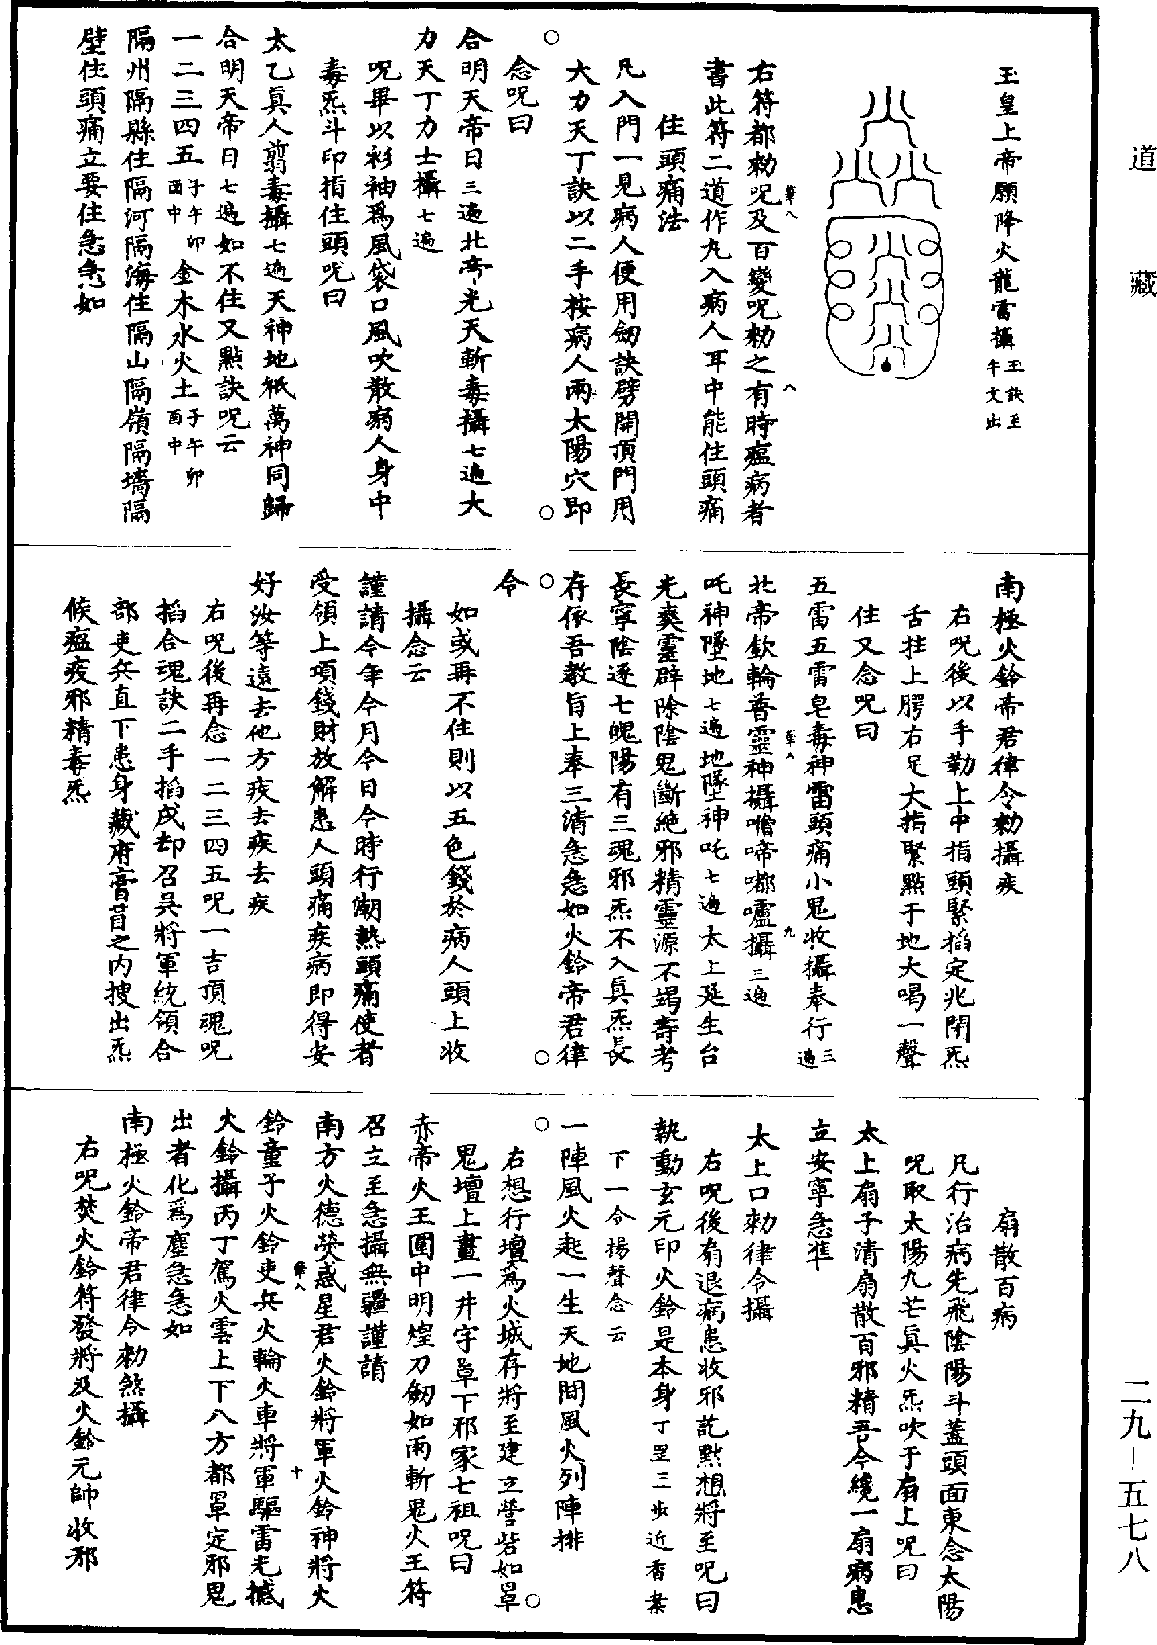 道藏
玉皇上帝願降火龍雷攝玉訣至午文出
右符都勑呪及百變呪勑之有時瘟病者
書此符二道作丸入病人耳中能住頭痛
住頭痛法
凡入門一見病人便用劒訣劈開頂門用
大力天丁訣以二手按病人兩太陽穴即
念呪曰
合明天帝日三遍北帝光天斬毒攝七遍大
力天丁力士攝七遍
呪畢以衫袖爲風袋口風吹散病人身中
毒炁斗印指住頭呪曰
太乙眞人翦毒攝七遍天神地祇萬神同歸
合明天帝日七遍如不住又點訣呪云
一二三四五子午卯酉中金木水火土子午卯酉中
隔州隔縣住隔河隔海住隔山隔嶺隔墻隔
壁住頭痛立要住急急如
南極火鈴帝君律令勑攝疾
右呪後以手勒上中指頭緊掐定兆閉炁
舌拄上腭右足大指緊點于地大喝一聲
住又念呪曰
五雷五雷皂毒神雷頭痛小鬼收攝奉行三遍
北帝欽輪普靈神攝噜啼嘟嚧攝三遍
吒神墜地七遍地墜神吒七遍太上延生台
光奭靈辟除陰鬼斷絶邪精靈源不竭壽考
長寧陰逐七魄陽有三魂邪炁不入眞炁長
存依吾教旨上奉三清急急如火鈴帝君律
令
如或再不住則以五色錢於病人頭上收
攝念云
謹請今年今月今日今時行潮熱頭痛使者
受領上項錢財放解患人頭痛疾病即得安
好汝等遠去他方疾去疾去疾
右呪後再念一二三四五呪一吉頂魂呪
掐合魂訣二手掐戌却召吳將軍統領合
部吏兵直下患身藏府膏肓之内搜出炁
候瘟疫邪精毒炁
扇散百病
凡行治病先飛陰陽斗蓋頭面東念太陽
呪取太陽九芒眞火炁吹于扇上呪曰
太上扇子清扇散百邪精吾今繞一扇病患
立安寧急准
太上口勑律令攝
右呪後扇退病患收邪訖黙想將至呪曰
執動玄元印火鈴是本身丁罡三步近香案
下一令揚聲念云
一陣風火起一生天地間風火列陣排
右想行壇爲火城存將至建立營砦如罩
鬼壇上畫一井字罩下邪家七祖呪曰
赤帝火王圍中明煌刀劒如雨斬鬼火王符
召立至急攝無疆謹請
南方火德熒惑星君火鈴將軍火鈴神將火
鈴童子火鈴吏兵火輪火車將軍驅雷光撼
火鈴攝丙丁駕火雲上下八方都罩定邪鬼
出者化爲塵急急如
南極火鈴帝君律令勑煞攝
右呪焚火鈴符發將及火鈴元帥收邪
二九—五七八